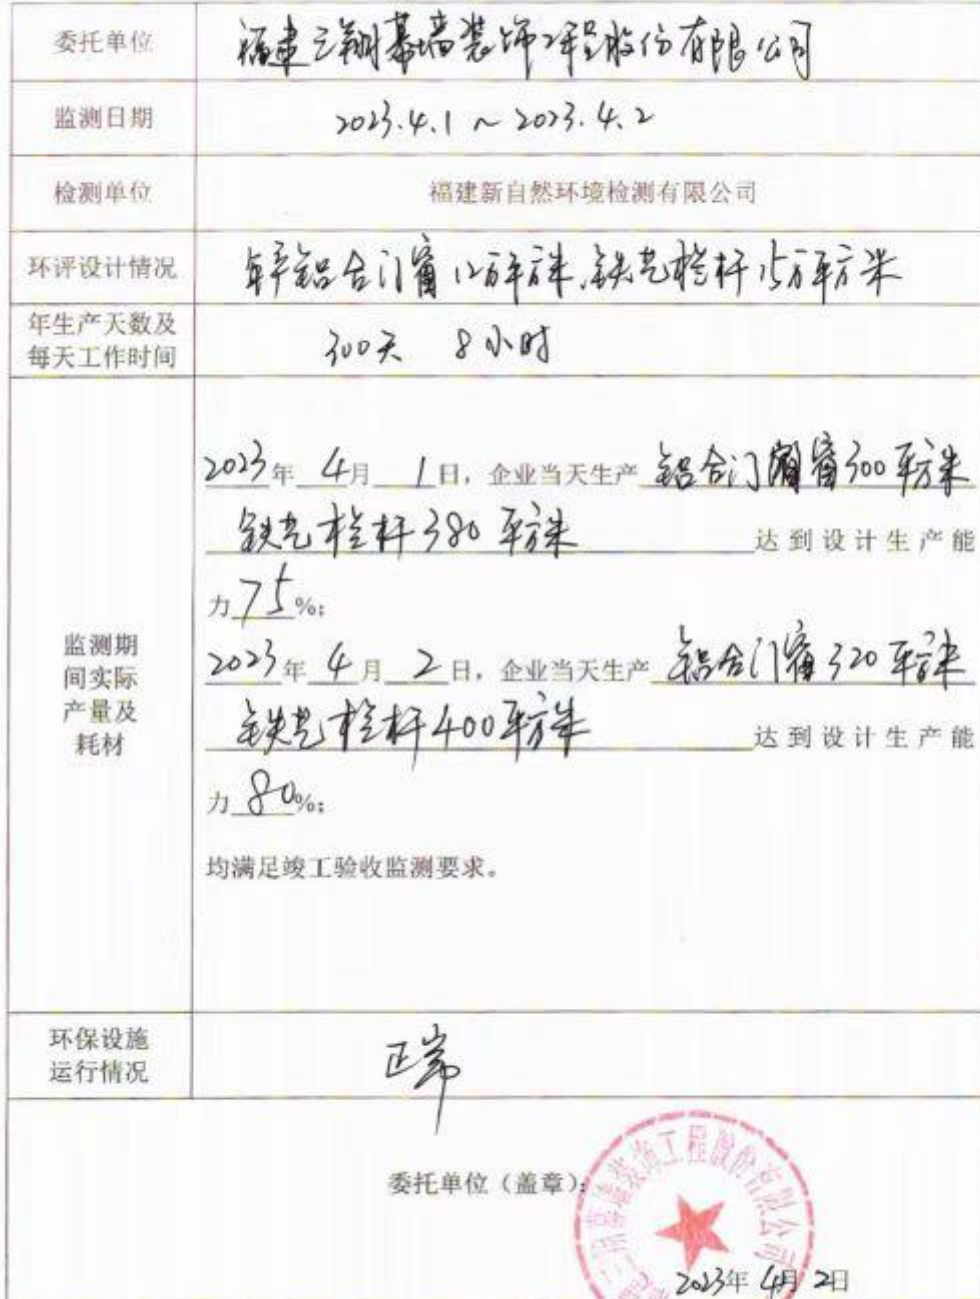 委托单位 福建三翔幕墙装饰工程股份有限公司
监测日期 2023.4.1 ~ 2023.4.2
检测单位 福建新自然环境检测有限公司
环评设计情况 年产铝合门窗12万平方米,铁艺栏杆15万平方米
年生产天数及
每天工作时间 300天 8小时
2023年 4月 1日，企业当天生产 铝合门窗300平方米
铁艺栏杆380平方米 达到设计生产能
力75%；
监测期
间实际
产量及
耗材
2023年 4月 2日，企业当天生产 铝合门窗320平方米
铁艺栏杆400平方米 达到设计生产能
力80%；
均满足竣工验收监测要求。
环保设施
运行情况 正常
委托单位（盖章）：
幕墙装饰工程股份有限公司
2023年 4月 2日